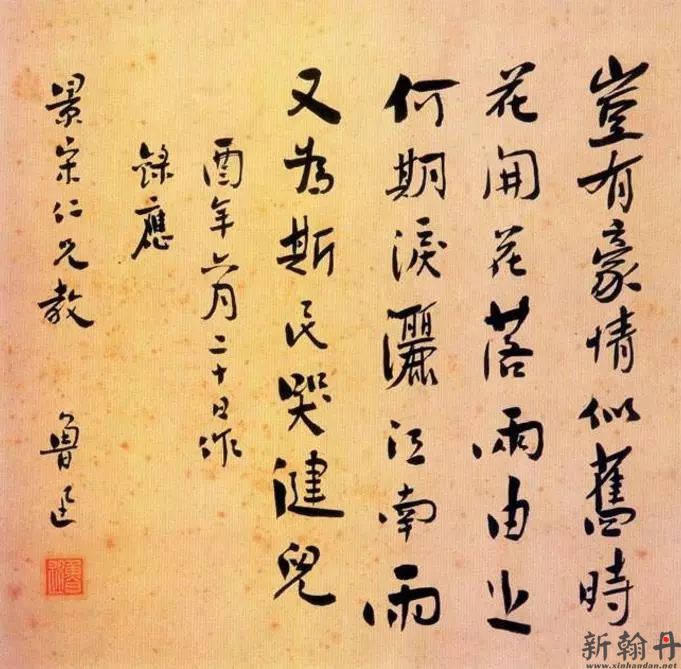 豈有豪情似舊時
花開花落兩由之
何期淚灑江南雨
又為斯民哭健兒
酉年六月二十日作
錄應
景宋仁兄教
魯迅
魯迅
新翰丹
www.xinhandan.net